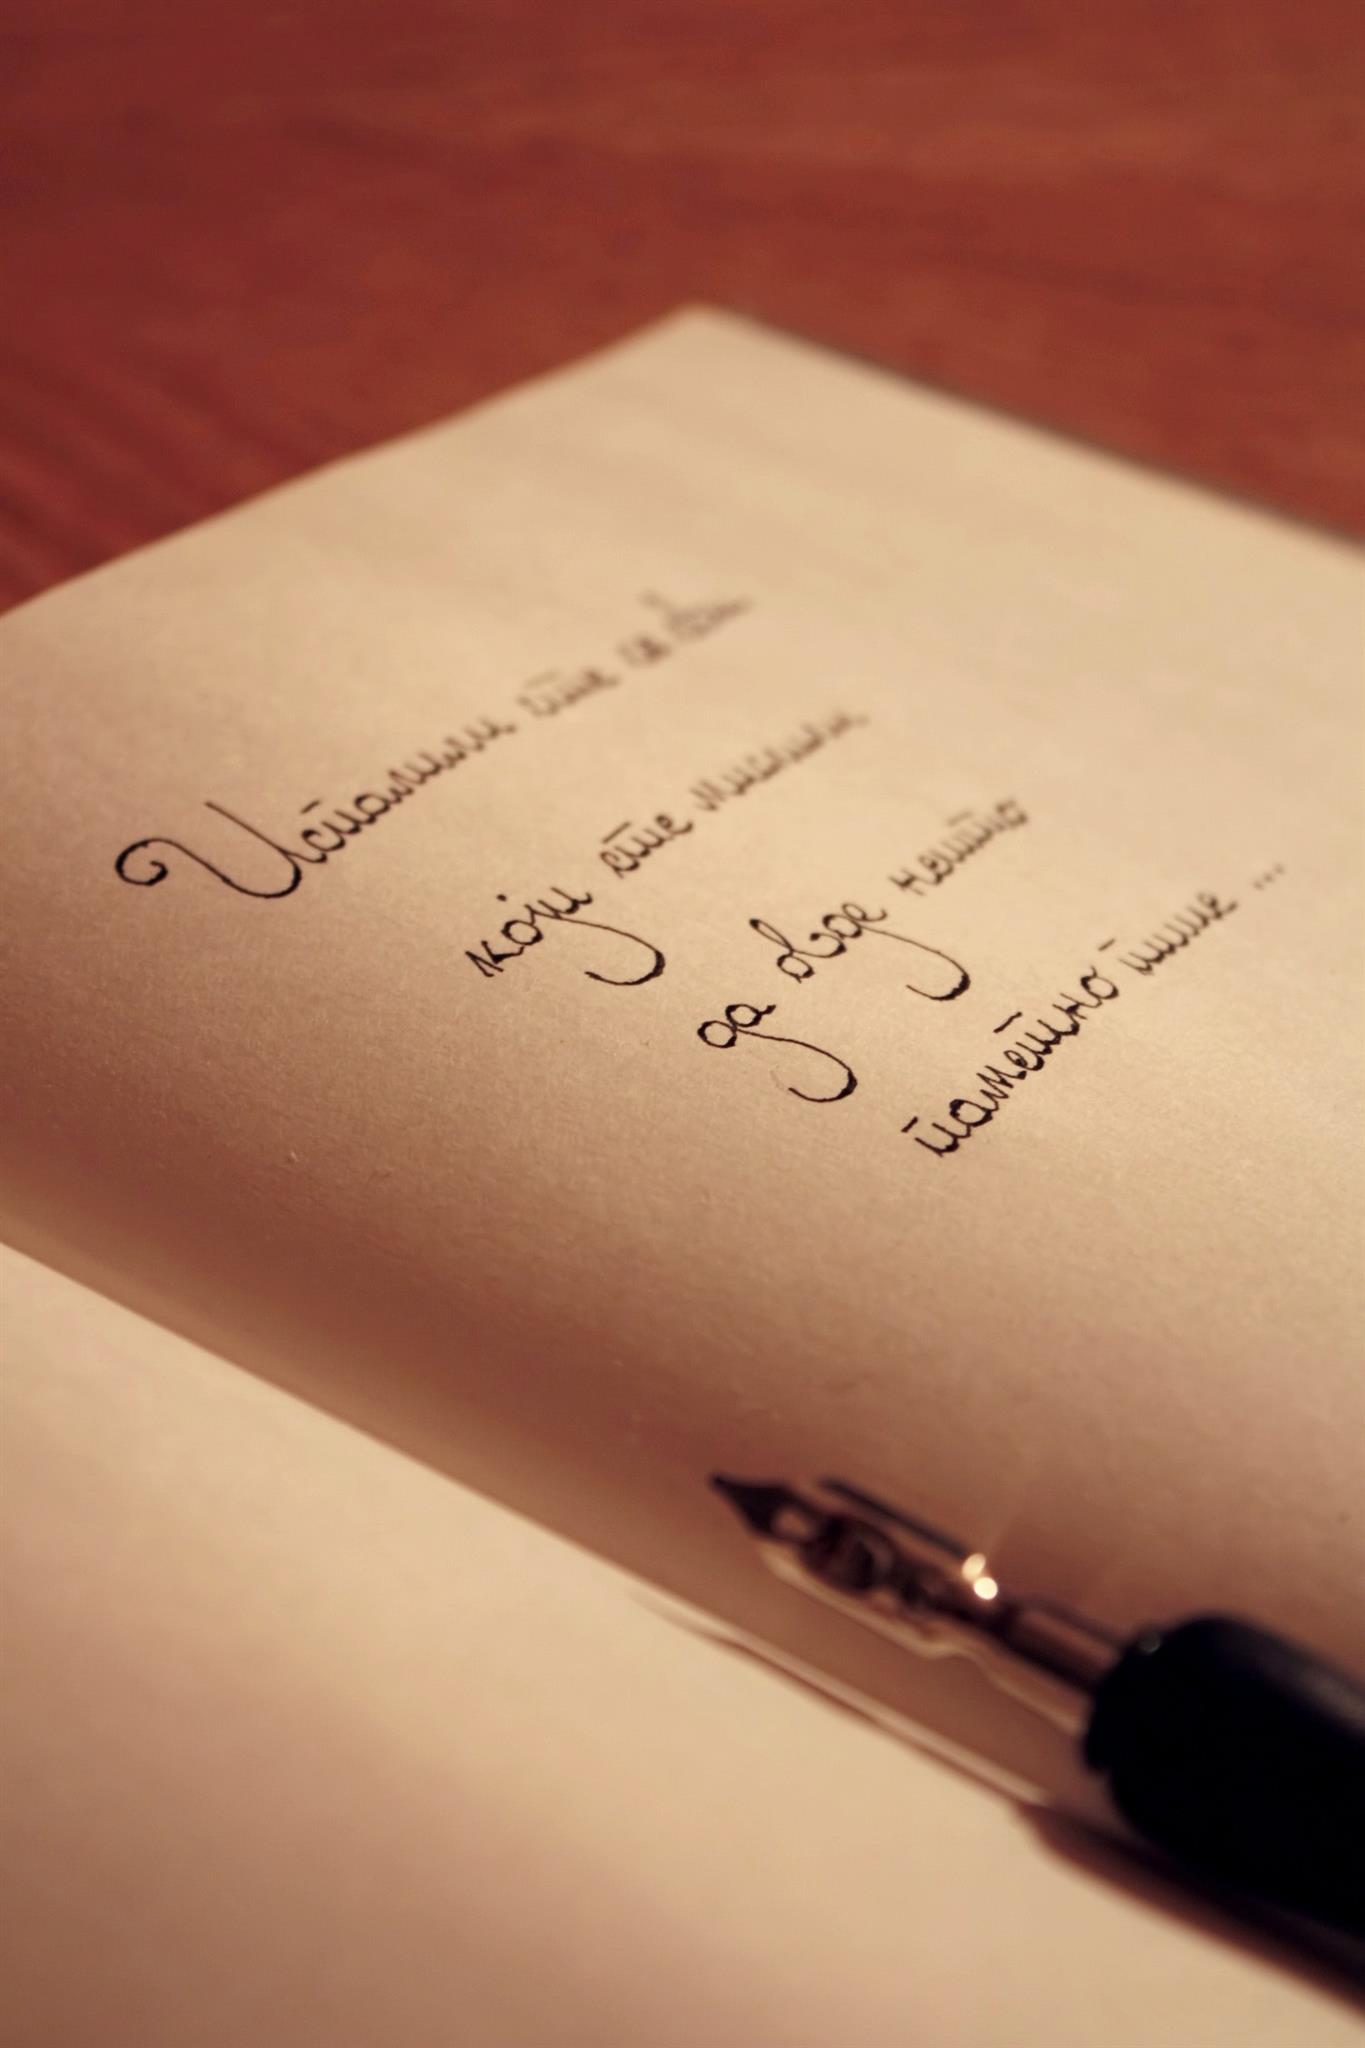 Испалили сте се
који сте мислили
да овде нешто
паметно пише ...